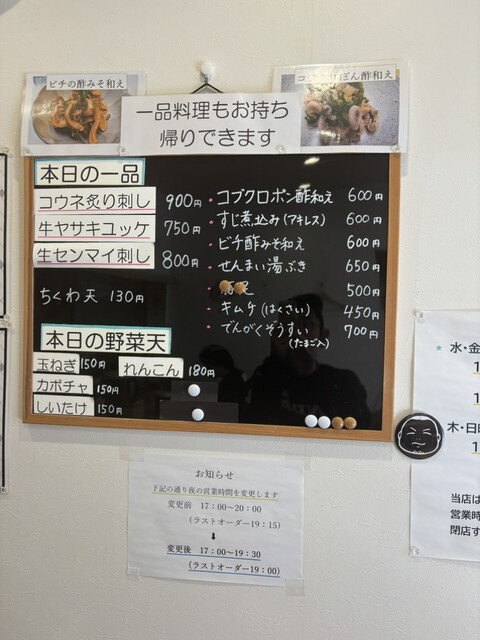 ビチの酢みそ和え
ぽん酢和え
一品料理もお持ち
帰りできます
本日の一品
コウネ炙り刺し 900円
牛ヤサキユッケ 750円
生センマイ刺し 800円
ちくわ天 130円
本日の野菜天
玉ねぎ 150円
れんこん 180円
カボチャ 150円
しいたけ 150円
・コブクロポン酢和え 600円
・すじ煮込み(アキレス) 600円
・ビチ酢みそ和え 600円
・せんまい湯ぶき 650円
500円
・キムケ(はくさい) 450円
・でんがくぞうすい 700円
(たまご入)
お知らせ
下記の通り夜の営業時間を変更します
変更前 17:00~20:00
(ラストオーダー19:15)
⬇
変更後 17:00~19:30
(ラストオーダー19:00)
水・金
木・日
当店は
営業時
閉店す